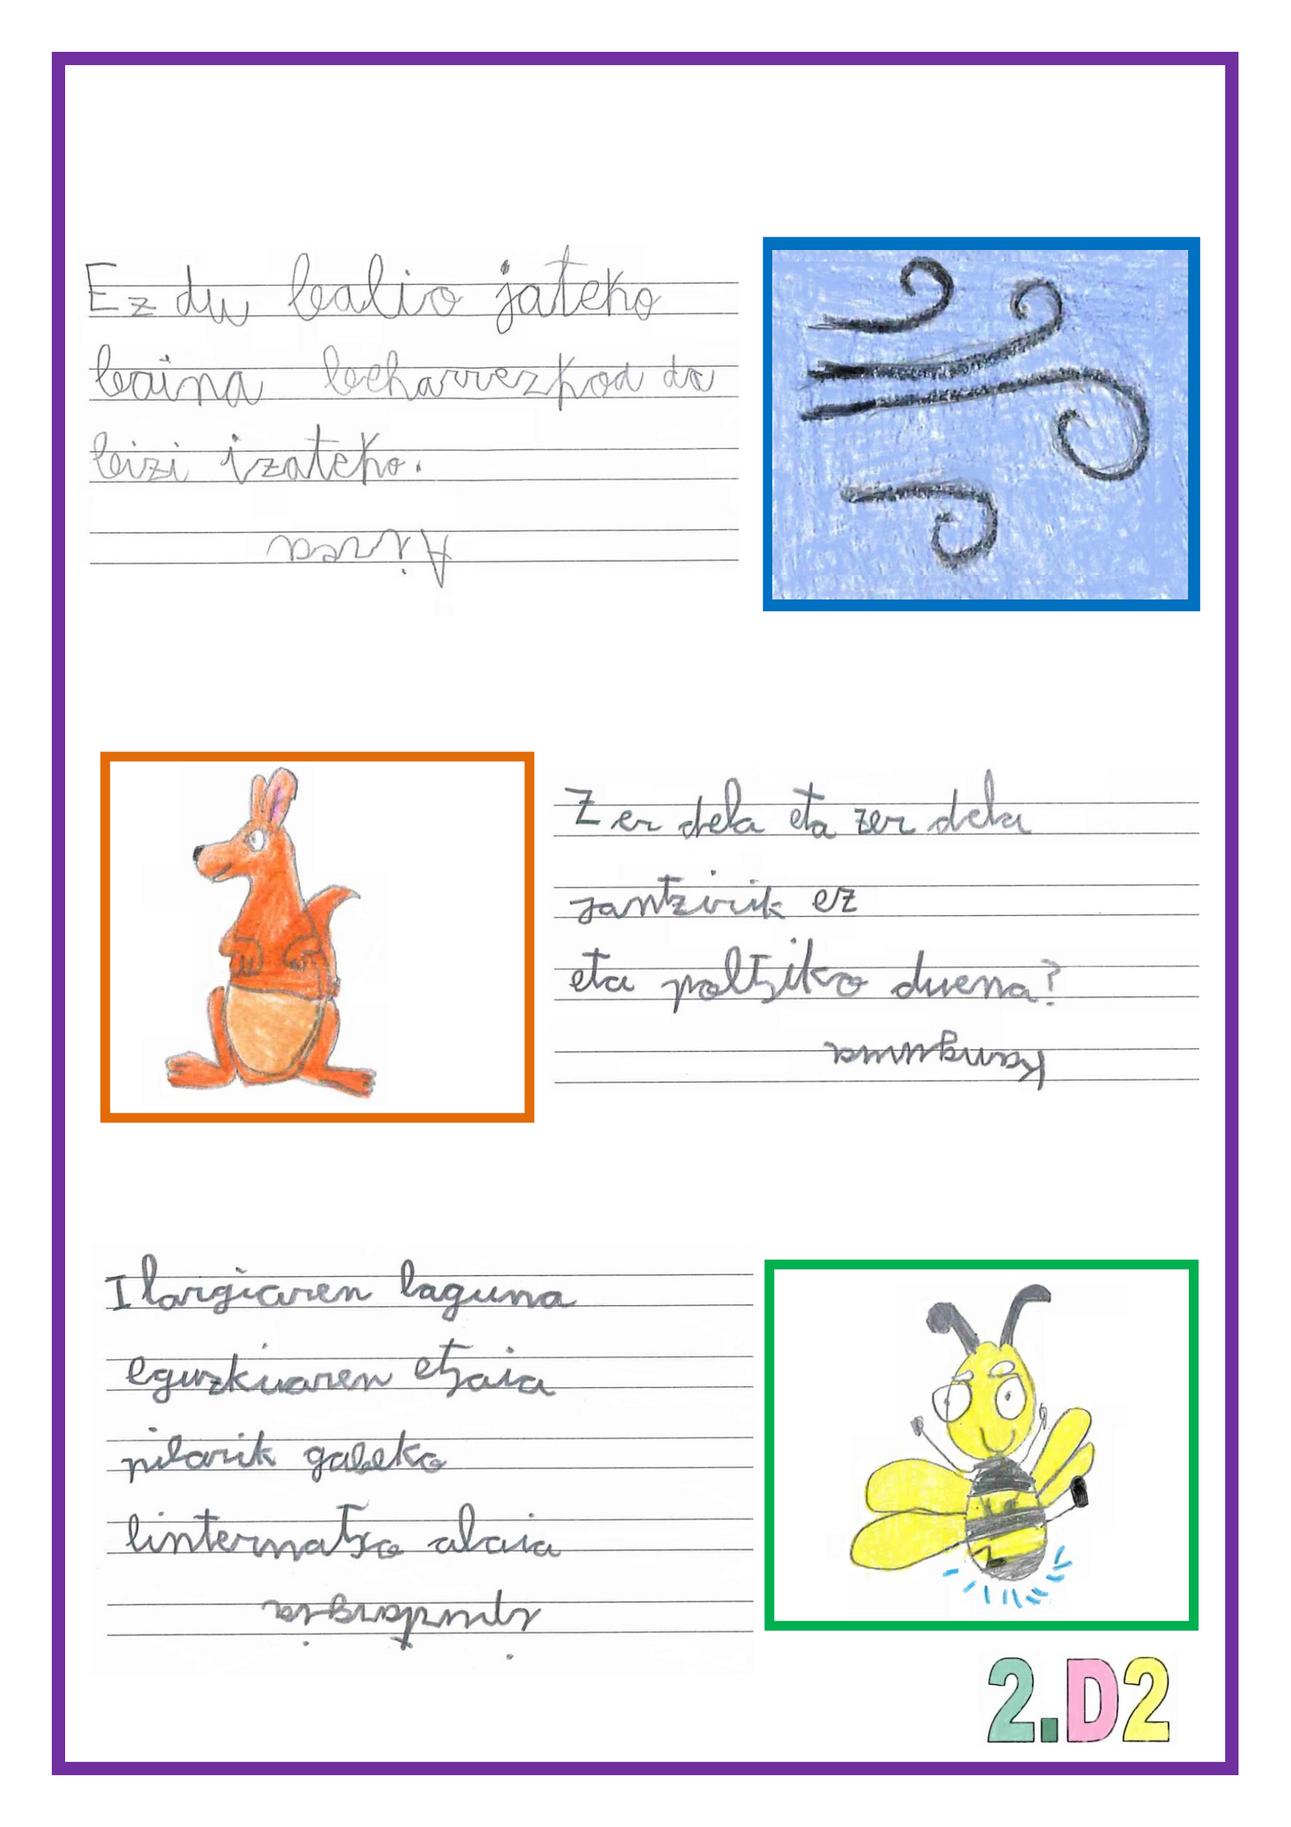 Ez du balio jateko
baina beharrezkoa da
bizi izateko.
Airea
Zer dela eta zer dela
jantzirik ez
eta poltsiko duena?
Kangurua
Ilargiaren laguna
eguzkiaren etsaia
pilarik gabeko
linternatxo alaia
ipurtargia
2.D2